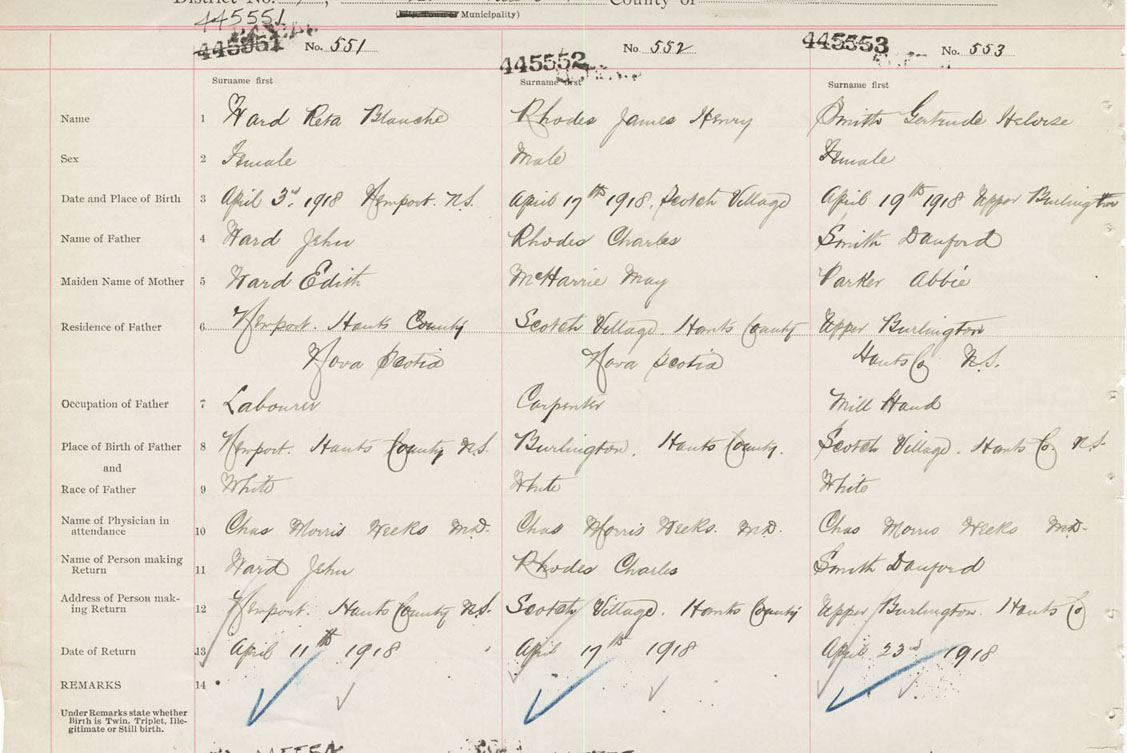 District No.
County of
Municipality)
445551
445551 No. 551 445552 No 552 445553 No. 553
Surname first Surname first Surname first
Name 1 Ward Reta Blanche Rhodes James Henry Smith Gertrude Heloise
Sex 2 Female Male Female
Date and Place of Birth 3 April 3rd, 1918 Newport. N.S. April 17th 1918, Scotch Village April 19th 1918 Upper Burlington
Name of Father 4 Ward John Rhodes Charles Smith Danford
Maiden Name of Mother 5 Ward Edith McHarrie May Parker Abbie
Residence of Father 6 Newport. Hants County Scotch Village. Hants County Upper Burlington
Nova Scotia Nova Scotia Hants Co N.S.
Occupation of Father 7 Labourer Carpenter Mill Hand
Place of Birth of Father 8 Newport. Hants County N.S. Burlington, Hants County. Scotch Village. Hants Co N.S.
and
Race of Father 9 White White White
Name of Physician in
attendance 10 Chas Morris Weeks M.D. Chas Morris Weeks. M.D. Chas Morris Weeks M.D.
Name of Person making
Return 11 Ward John Rhodes Charles Smith Danford
Address of Person mak-
ing Return 12 Newport. Hants County N.S. Scotch Village. Hants County Upper Burlington. Hants Co
Date of Return 13 April 11th 1918 April 17th 1918 April 23rd 1918
REMARKS 14
Under Remarks state whether
Birth is Twin, Triplet, Ille-
gitimate or Still birth.